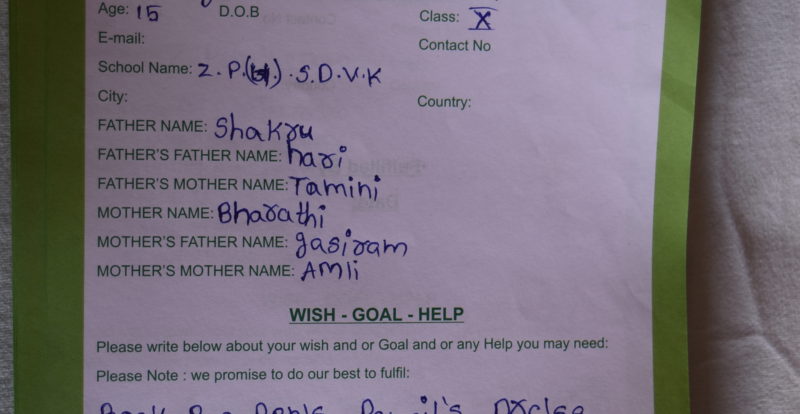 Age: 15 D.O.B Class: X
E-mail: Contact No
School Name: Z.P.(H).S.D.V.K
City: Country:
FATHER NAME: Shakru
FATHER'S FATHER NAME: hari
FATHER'S MOTHER NAME: Tamini
MOTHER NAME: Bharathi
MOTHER'S FATHER NAME: gasiram
MOTHER'S MOTHER NAME: AMli
WISH - GOAL - HELP
Please write below about your wish and or Goal and or any Help you may need:
Please Note : we promise to do our best to fulfil: